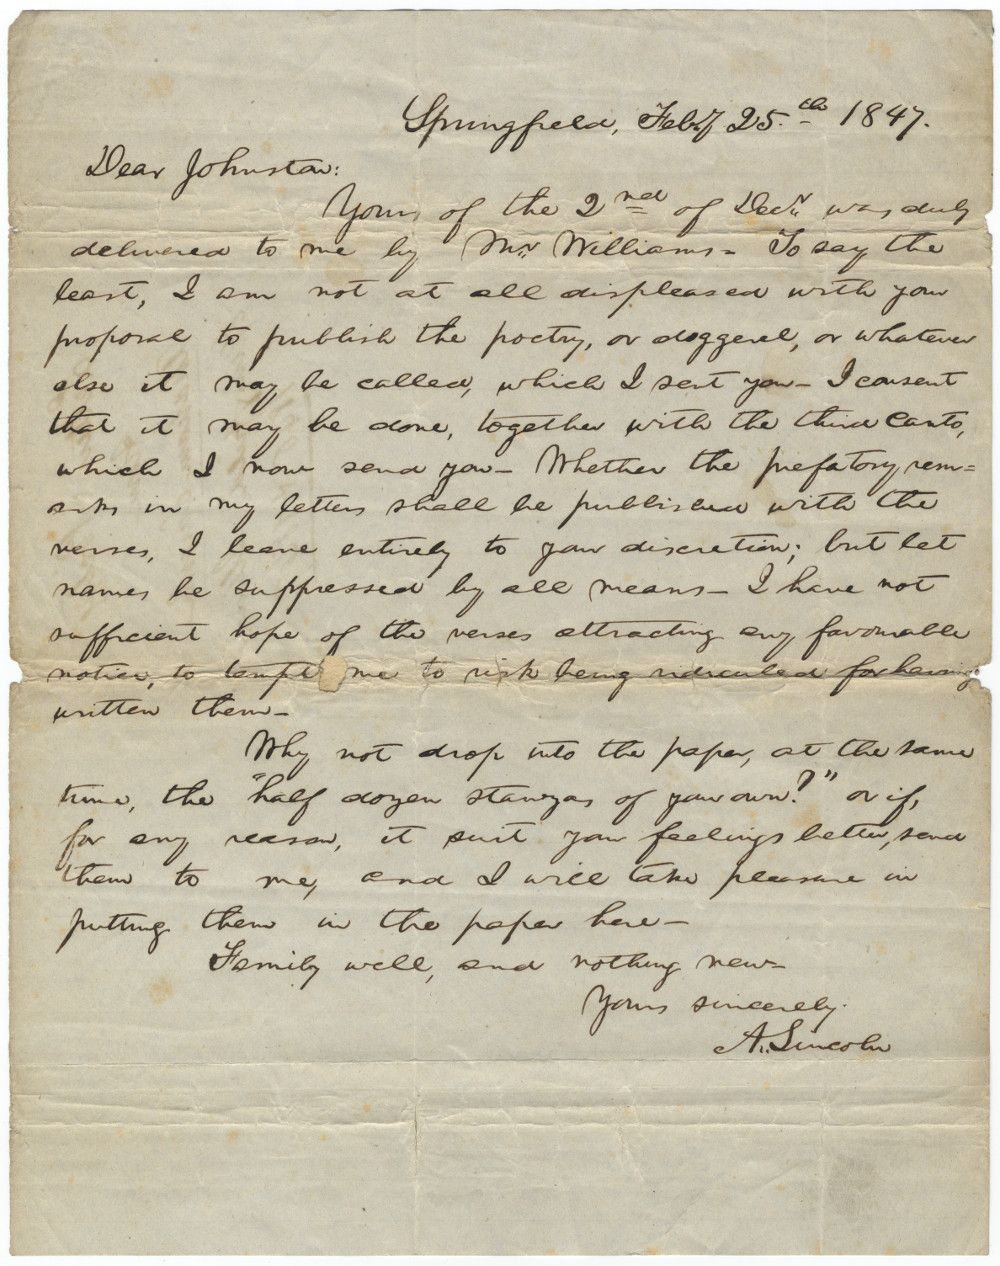 Springfield, Feby 25.th 1847.
Dear Johnston:
Yours of the 2nd of Decr. was duly
delivered to me by Mr. Williams - To say the
least, I am not at all displeased with your
proposal to publish the poetry, or doggerel, or whatever
else it may be called, which I sent you - I consent
that it may be done, together with the third canto,
which I now send you - Whether the prefatory rem=
arks in my letter shall be published with the
verses, I leave entirely to your discretion; but let
names be suppressed by all means - I have not
sufficient hope of the verses attracting any favorable
notice, to tempt me to risk being ridiculed for having
written them -
Why not drop into the paper, at the same
time, the "half dozen stanzas of your own?" or if,
for any reason, it suit your feelings better, send
them to me, and I will take pleasure in
putting them in the paper here -
Family well, and nothing new -
Yours sincerely.
A. Lincoln